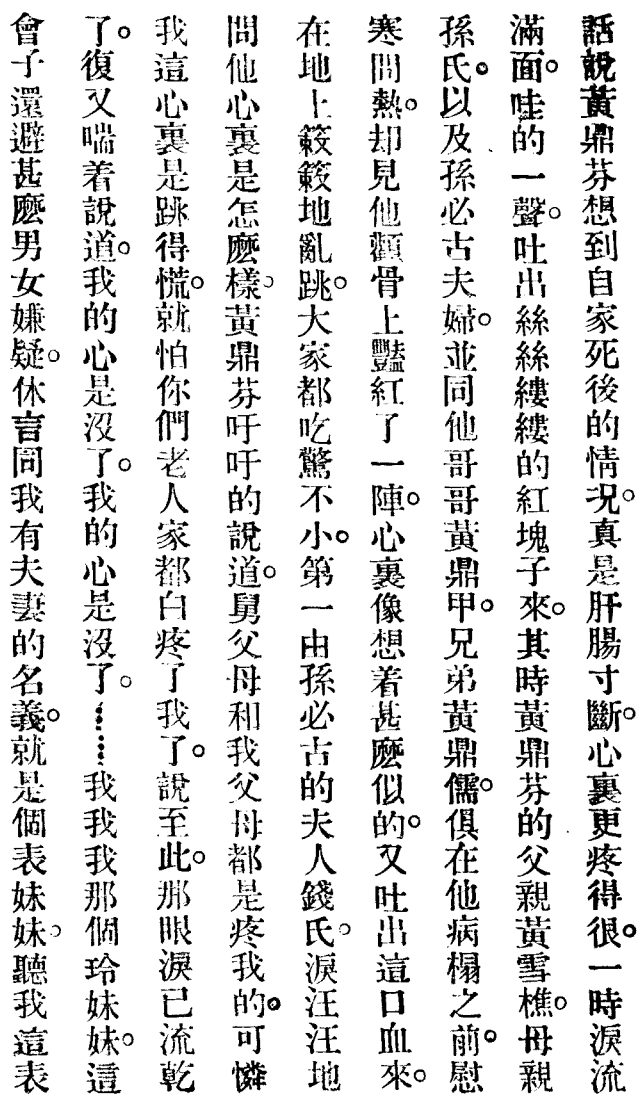 話說黃鼎芬想到自家死後的情况。真是肝腸寸斷。心裏更疼得很。一時淚流
滿面。哇的一聲。吐出絲絲縷縷的紅塊子來。其時黃鼎芬的父親黃雪樵。母親
孫氏。以及孫必古夫婦。並同他哥哥黃鼎甲。兄弟黃鼎儒。俱在他病榻之前。慰
寒問熱。却見他顴骨上豔紅了一陣。心裏像想着甚麽似的。又吐出這口血來。
在地上簌簌地亂跳。大家都吃驚不小。第一由孫必古的夫人錢氏。淚汪汪地
問他心裏是怎麽樣。黃鼎芬吁吁的說道。舅父母和我父母都是疼我的。可憐
我這心裏是跳得慌。就怕你們老人家都白疼了我了。說至此。那眼淚已流乾
了。復又喘着說道。我的心是沒了。我的心是沒了。……我我我那個玲妹妹。這
會子還避甚麽男女嫌疑。休言同我有夫妻的名義。就是個表妹妹。聽我這表